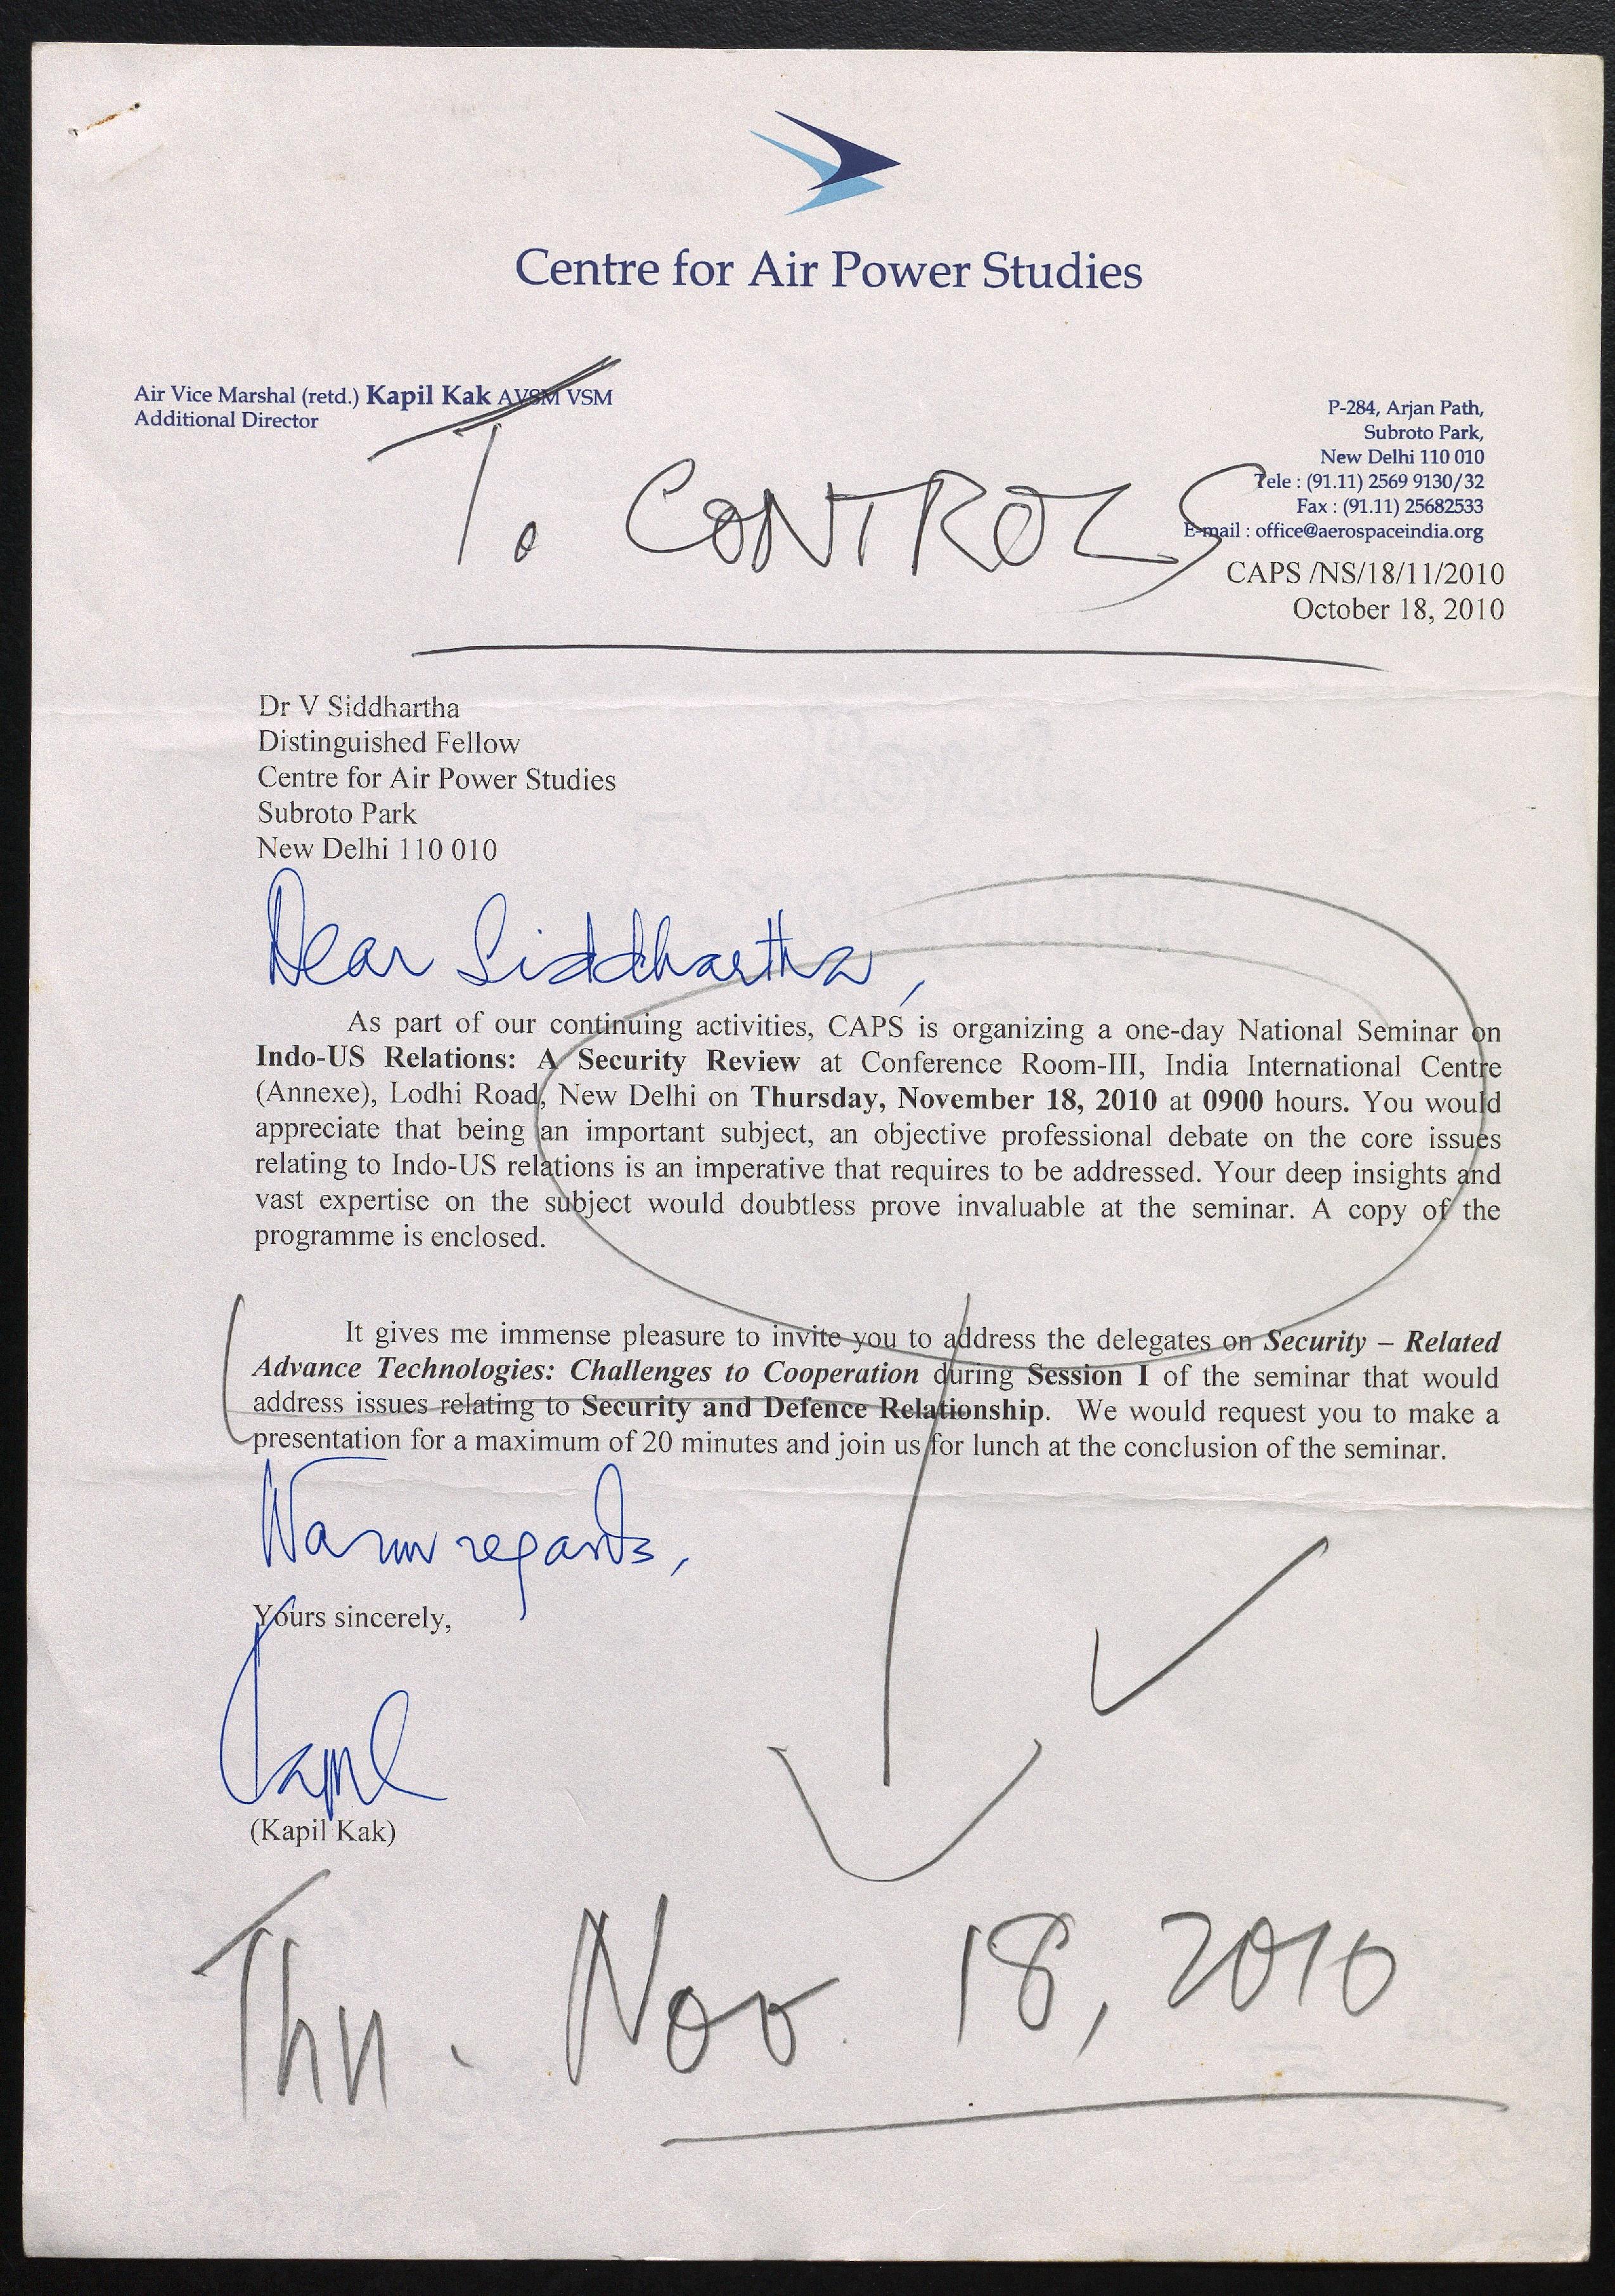 Centre for Air Power Studies
Air Vice Marshal (retd.) Kapil Kak AVSM VSM
Additional Director
P-284, Arjan Path,
Subroto Park,
New Delhi 110 010
Tele : (91.11) 2569 9130/32
Fax : (91.11) 25682533
E-mail : office@aerospaceindia.org
To CONTROLS
CAPS /NS/18/11/2010
October 18, 2010
Dr V Siddhartha
Distinguished Fellow
Centre for Air Power Studies
Subroto Park
New Delhi 110 010
Dear Siddhartha,
As part of our continuing activities, CAPS is organizing a one-day National Seminar on
Indo-US Relations: A Security Review at Conference Room-III, India International Centre
(Annexe), Lodhi Road, New Delhi on Thursday, November 18, 2010 at 0900 hours. You would
appreciate that being an important subject, an objective professional debate on the core issues
relating to Indo-US relations is an imperative that requires to be addressed. Your deep insights and
vast expertise on the subject would doubtless prove invaluable at the seminar. A copy of the
programme is enclosed.
It gives me immense pleasure to invite you to address the delegates on Security – Related
Advance Technologies: Challenges to Cooperation during Session I of the seminar that would
address issues relating to Security and Defence Relationship. We would request you to make a
presentation for a maximum of 20 minutes and join us for lunch at the conclusion of the seminar.
Warm regards,
Yours sincerely,
Kapil
(Kapil Kak)
Thu. Nov. 18, 2010